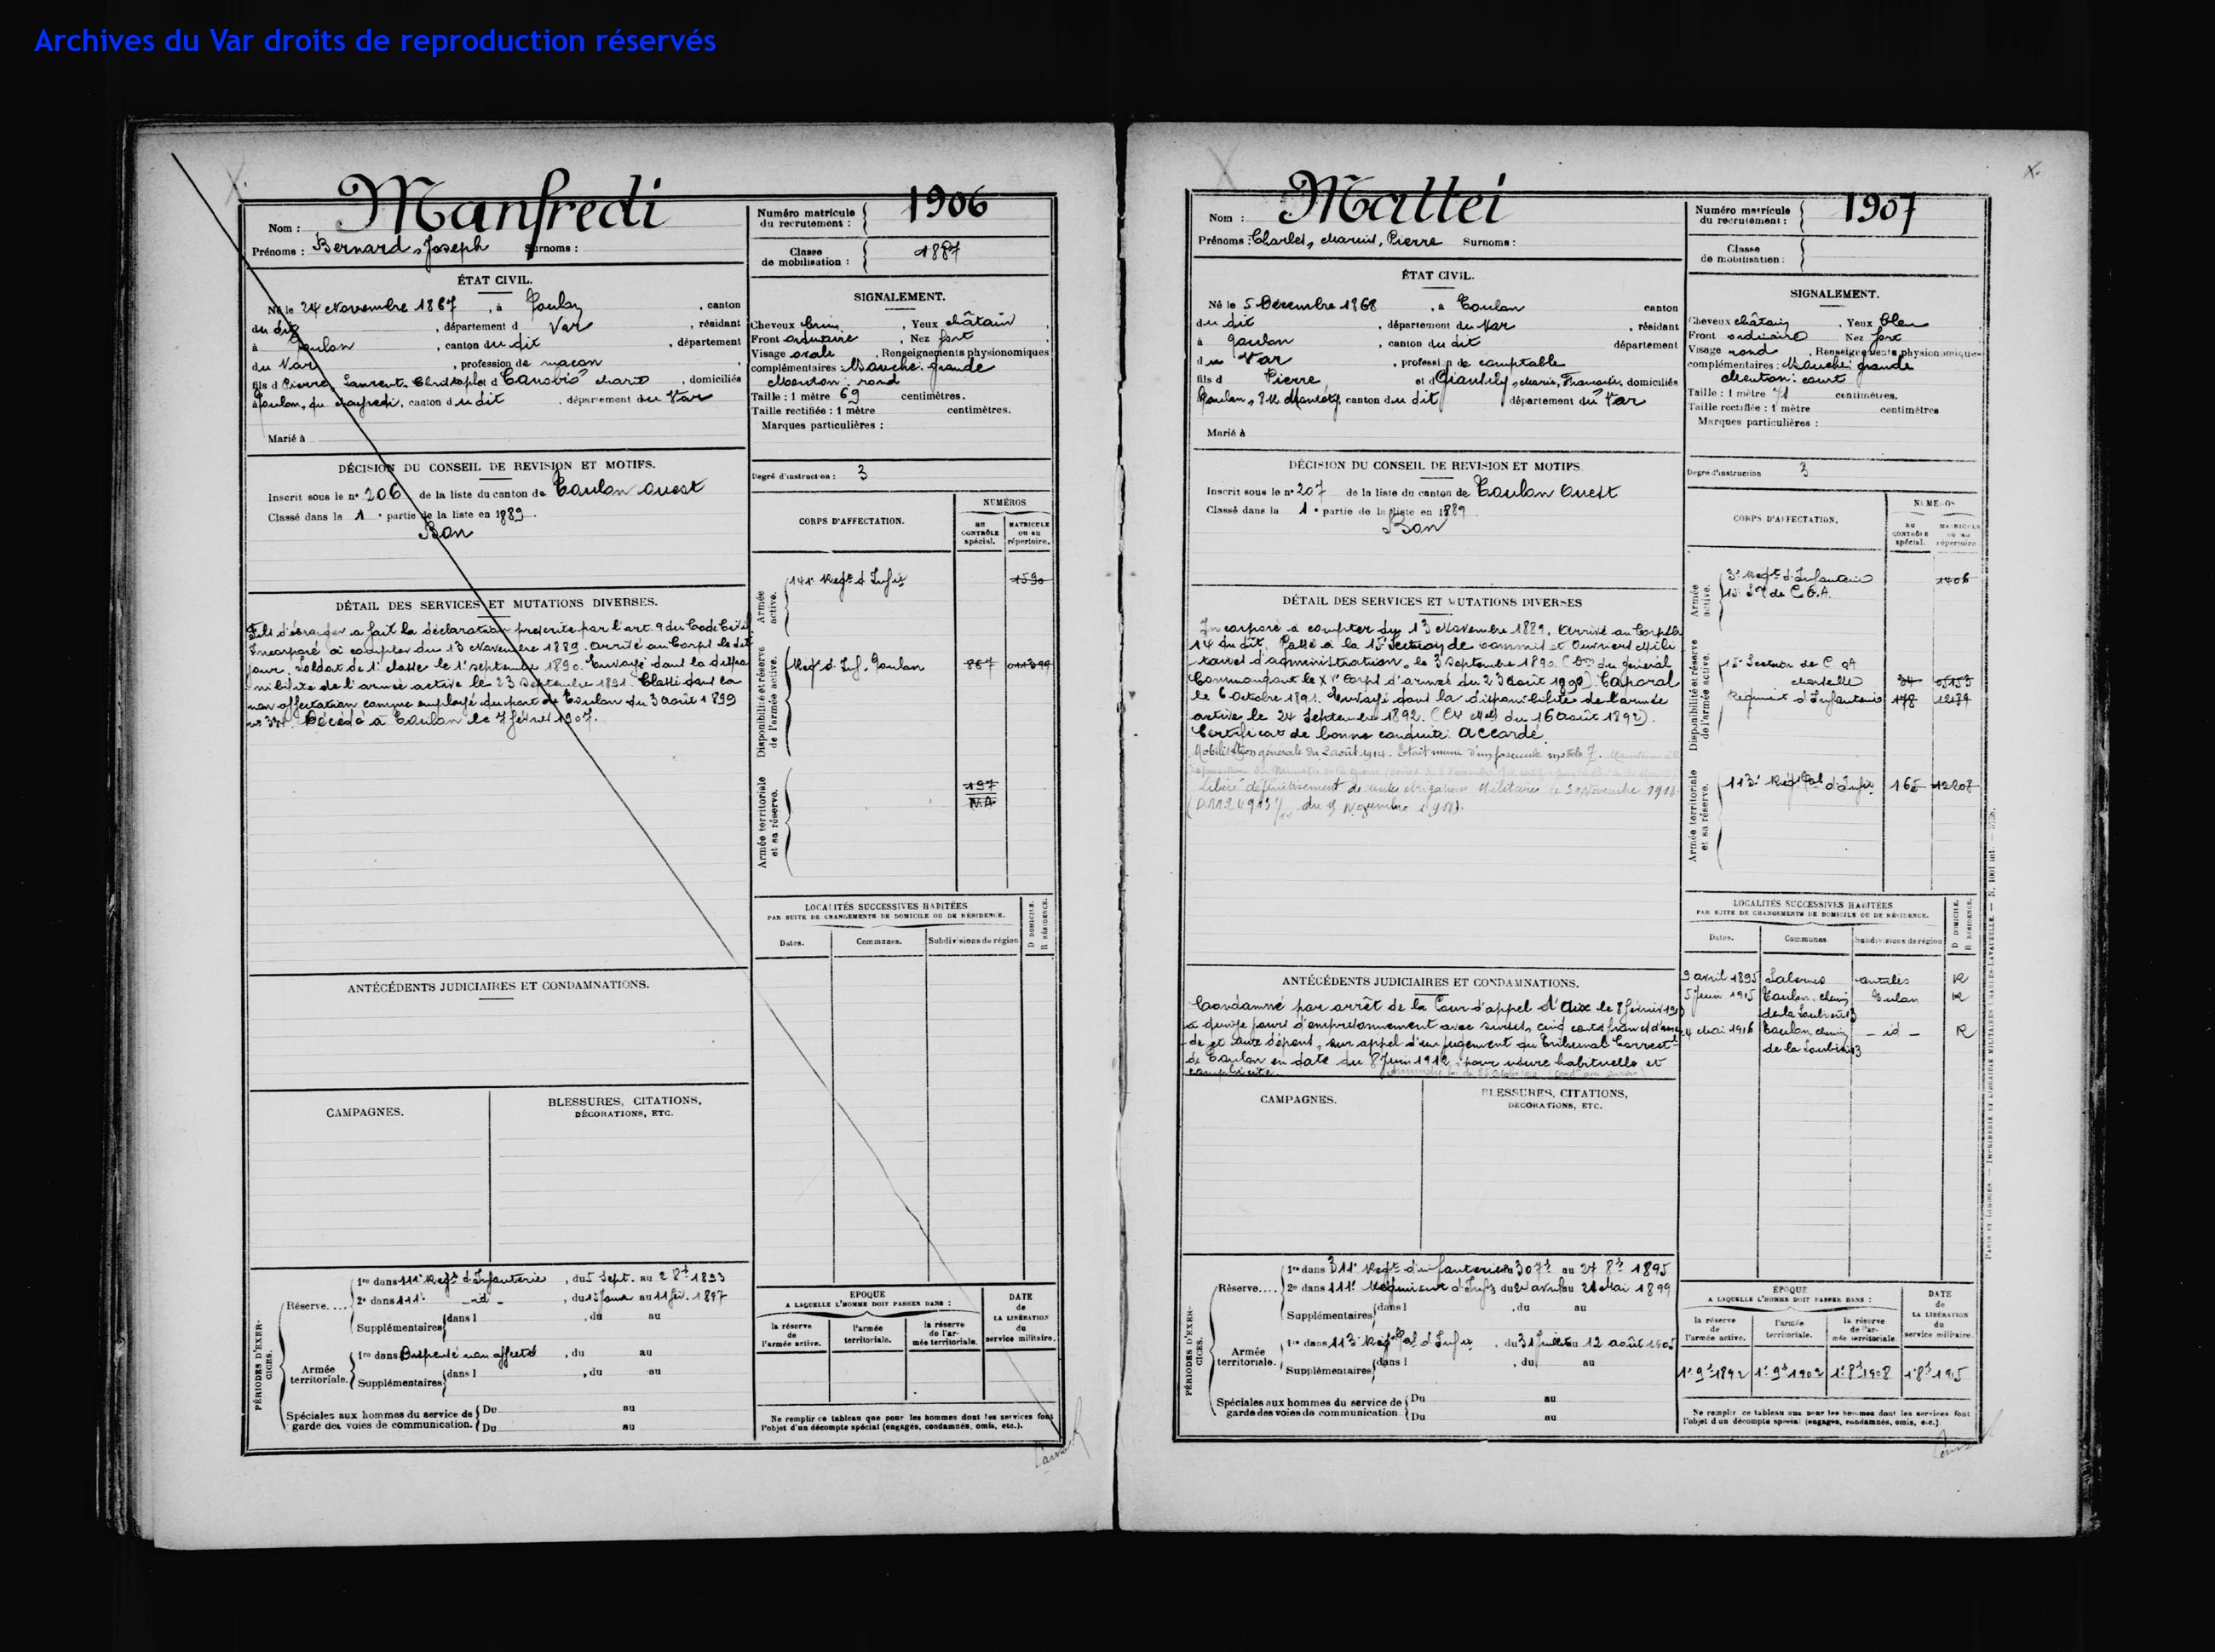 Archives du Var droits de reproduction réservés
Manfredi
Nom :
Prénoms : Bernard, Joseph Surnoms :
Numéro matricule du recrutement : 1906
Classe de mobilisation : 1887
ÉTAT CIVIL.
Né le 24 Novembre 1867, à Toulon, canton
du dit, département d Var, résidant
à Toulon, canton du dit, département
du Var, profession de maçon,
fils d Pierre, Laurent, Christophe et d Marie, domiciliés
à Toulon, canton du dit, département du Var
Marié à
SIGNALEMENT.
Cheveux brun, Yeux châtain,
Front ordinaire, Nez fort
Visage ovale, Renseignements physionomiques
complémentaires : Bouche : grande
Menton : rond
Taille : 1 mètre 69 centimètres.
Taille rectifiée : 1 mètre centimètres.
Marques particulières :
Degré d'instruction : 3
DÉCISION DU CONSEIL DE REVISION ET MOTIFS.
Inscrit sous le n° 206 de la liste du canton de Toulon Ouest
Classé dans la 1e partie de la liste en 1889.
Bon
DÉTAIL DES SERVICES ET MUTATIONS DIVERSES.
Fils d'étranger a fait la déclaration prescrite par l'art. 9 du Code Civil
Incorporé à compter du 13 Novembre 1889. Arrivé au Corps le dit
jour, Soldat de 1e classe le 1e septembre 1890. Envoyé dans la dispo
nibilité de l'armée active le 23 Septembre 1891. Classé dans la
non affectation comme employé du port de Toulon du 3 août 1899
Décédé à Toulon le 7 février 1907.
CORPS D'AFFECTATION.
NUMÉROS
au CONTRÔLE spécial.
MATRICULE ou au répertoire.
Armée active.
141e Régt d'Infie 1590
Disponibilité et réserve de l'armée active.
Régt d'Inf. Toulon 867
Armée territoriale et sa réserve.
197
N.A
LOCALITÉS SUCCESSIVES HABITÉES
PAR SUITE DE CHANGEMENTS DE DOMICILE OU DE RÉSIDENCE.
Dates. Communes. Subdivisions de région
D DOMICILE. R RÉSIDENCE.
ANTÉCÉDENTS JUDICIAIRES ET CONDAMNATIONS.
CAMPAGNES.
BLESSURES, CITATIONS, DÉCORATIONS, ETC.
PÉRIODES D'EXERCICES.
Réserve....
1re dans 111e Régt d'Infanterie, du 5 Sept. au 2 8bre 1893
2e dans 111e - id -, du 15 Janv au 11 fév. 1897
Supplémentaires dans l, du au
Armée territoriale.
1re dans Dispensé non affecté, du au
Supplémentaires dans l, du au
Spéciales aux hommes du service de garde des voies de communication.
Du au
Du au
EPOQUE
A LAQUELLE L'HOMME DOIT PASSER DANS :
la réserve de l'armée active.
l'armée territoriale.
la réserve de l'armée territoriale.
DATE de LA LIBÉRATION du service militaire.
Ne remplir ce tableau que pour les hommes dont les services font
l'objet d'un décompte spécial (engagés, condamnés, omis, etc.).
Mattei
Nom :
Prénoms : Charles, Marius, Pierre Surnoms :
Numéro matricule du recrutement : 1907
Classe de mobilisation :
ÉTAT CIVIL.
Né le 5 Décembre 1868, à Toulon canton
du dit, département du Var, résidant
à Toulon, canton du dit département
du Var, profession de comptable
fils d Pierre, et d Marie, domiciliés
Toulon, canton du dit département du Var
Marié à
SIGNALEMENT.
Cheveux châtain, Yeux bleu
Front ordinaire Nez fort
Visage rond, Renseignements physionomiques
complémentaires : Bouche : grande
Menton : court
Taille : 1 mètre 71 centimètres.
Taille rectifiée : 1 mètre centimètres
Marques particulières :
Degré d'instruction 3
DÉCISION DU CONSEIL DE REVISION ET MOTIFS
Inscrit sous le n° 207 de la liste du canton de Toulon Ouest
Classé dans la 1e partie de la liste en 1889
Bon
DÉTAIL DES SERVICES ET MUTATIONS DIVERSES
Incorporé à compter du 13 Novembre 1889. Arrivé au Corps le
14 du dit. Passé à la 15e Section de commis et Ouvriers Mili
taires d'administration, le 3 Septembre 1890. (Don du général
Commandant le XVe Corps d'armée du 23 août 1890). Caporal
le 6 Octobre 1891. Envoyé dans la disponibilité de l'armée
active le 24 Septembre 1892. (Cre Melle du 16 août 1892).
Certificat de bonne conduite : accordé.
Mobilisation générale du 2 août 1914. Etait muni d'un fascicule modèle 7.
Libéré définitivement de toutes obligations Militaires le Novembre 1918
du 9 Novembre 1918).
CORPS D'AFFECTATION.
NUMÉROS
au CONTRÔLE spécial.
MATRICULE ou au répertoire
Armée active.
3e Régt d'Infanterie 1406
15e Son de C.O.A.
Disponibilité et réserve de l'armée active.
15e Section de C.O.A
Marseille 34
Régiment d'Infanterie
Armée territoriale et sa réserve.
113e Régt Tal d'Infie 165 12208
LOCALITÉS SUCCESSIVES HABITÉES
PAR SUITE DE CHANGEMENTS DE DOMICILE OU DE RÉSIDENCE.
Dates. Communes Subdivisions de région
D DOMICILE. R RÉSIDENCE.
9 avril 1895 Salernes Antibes R
5 Juin 1915 Toulon, chemin Toulon R
de la Loubière 13
4 Mai 1916 Toulon, chemin - id - R
de la Loubière 13
ANTÉCÉDENTS JUDICIAIRES ET CONDAMNATIONS.
Condamné par arrêt de la Cour d'appel d'Aix le 8 février 1913
à quinze jours d'emprisonnement avec sursis, cinq cents francs d'amen
de et aux dépens, sur appel d'un jugement du Tribunal Correctl
de Toulon en date du 8 Juin 1912, pour usure habituelle et
complicité.
CAMPAGNES.
BLESSURES, CITATIONS, DÉCORATIONS, ETC.
PÉRIODES D'EXERCICES.
Réserve....
1re dans 311e Régt d'infanterie du 30 7bre au 27 8bre 1895
2e dans 111e Régiment d'Infie du 24 avril au 21 Mai 1899
Supplémentaires dans l, du au
Armée territoriale.
1re dans 113e Régt Tal d'Infie, du 31 Juillet au 12 août 1905
Supplémentaires dans l, du au
Spéciales aux hommes du service de garde des voies de communication
Du au
Du au
EPOQUE
A LAQUELLE L'HOMME DOIT PASSER DANS :
la réserve de l'armée active.
l'armée territoriale.
la réserve de l'armée territoriale
DATE de LA LIBÉRATION du service militaire.
1e 9bre 1892 1e 9bre 1902 1e 8bre 1908 1e 8bre 1915
Ne remplir ce tableau que pour les hommes dont les services font
l'objet d'un décompte spécial (engagés, condamnés, omis, etc.)